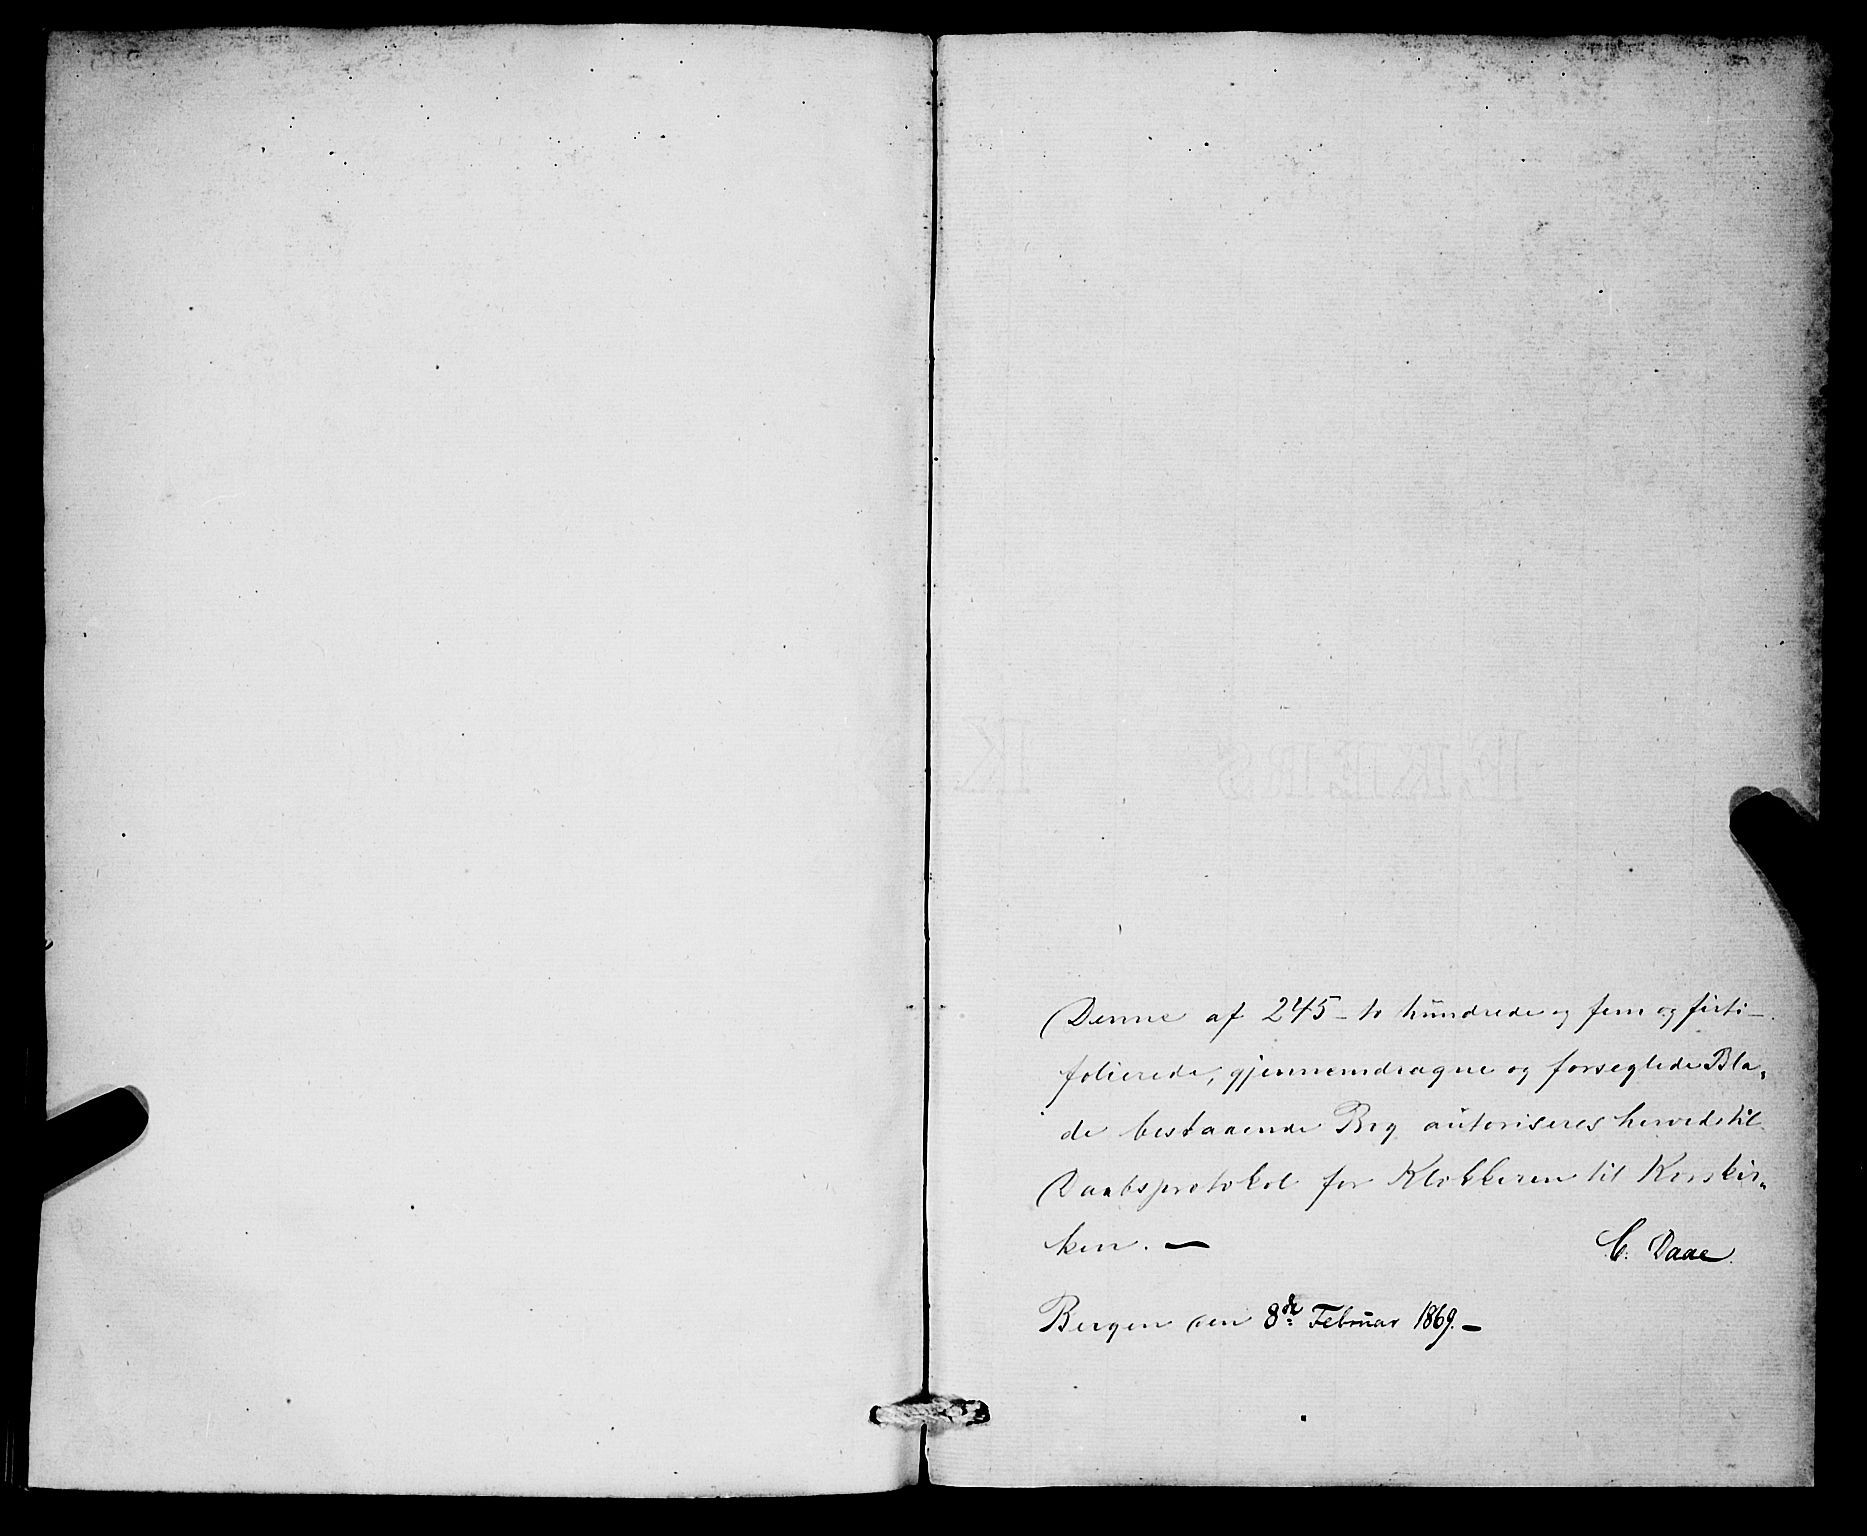 Denne af 245 – to hundrede og fem og firti –
folierede, gjennemdragne og forseglede Bla-
de bestaaende Bog autoriseres herved til
Daabsprotokol for Klokkeren til Korskir-
ken. —
C. Daae.
Bergen den 8de Februar 1869. —